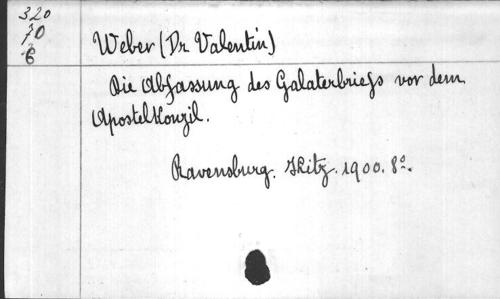 320
70
€
Weber (Dr Valentin)
Die Abfassung des Galaterbriefs vor dem
Apostelkonzil.
Ravensburg. Kitz. 1900. 8º.